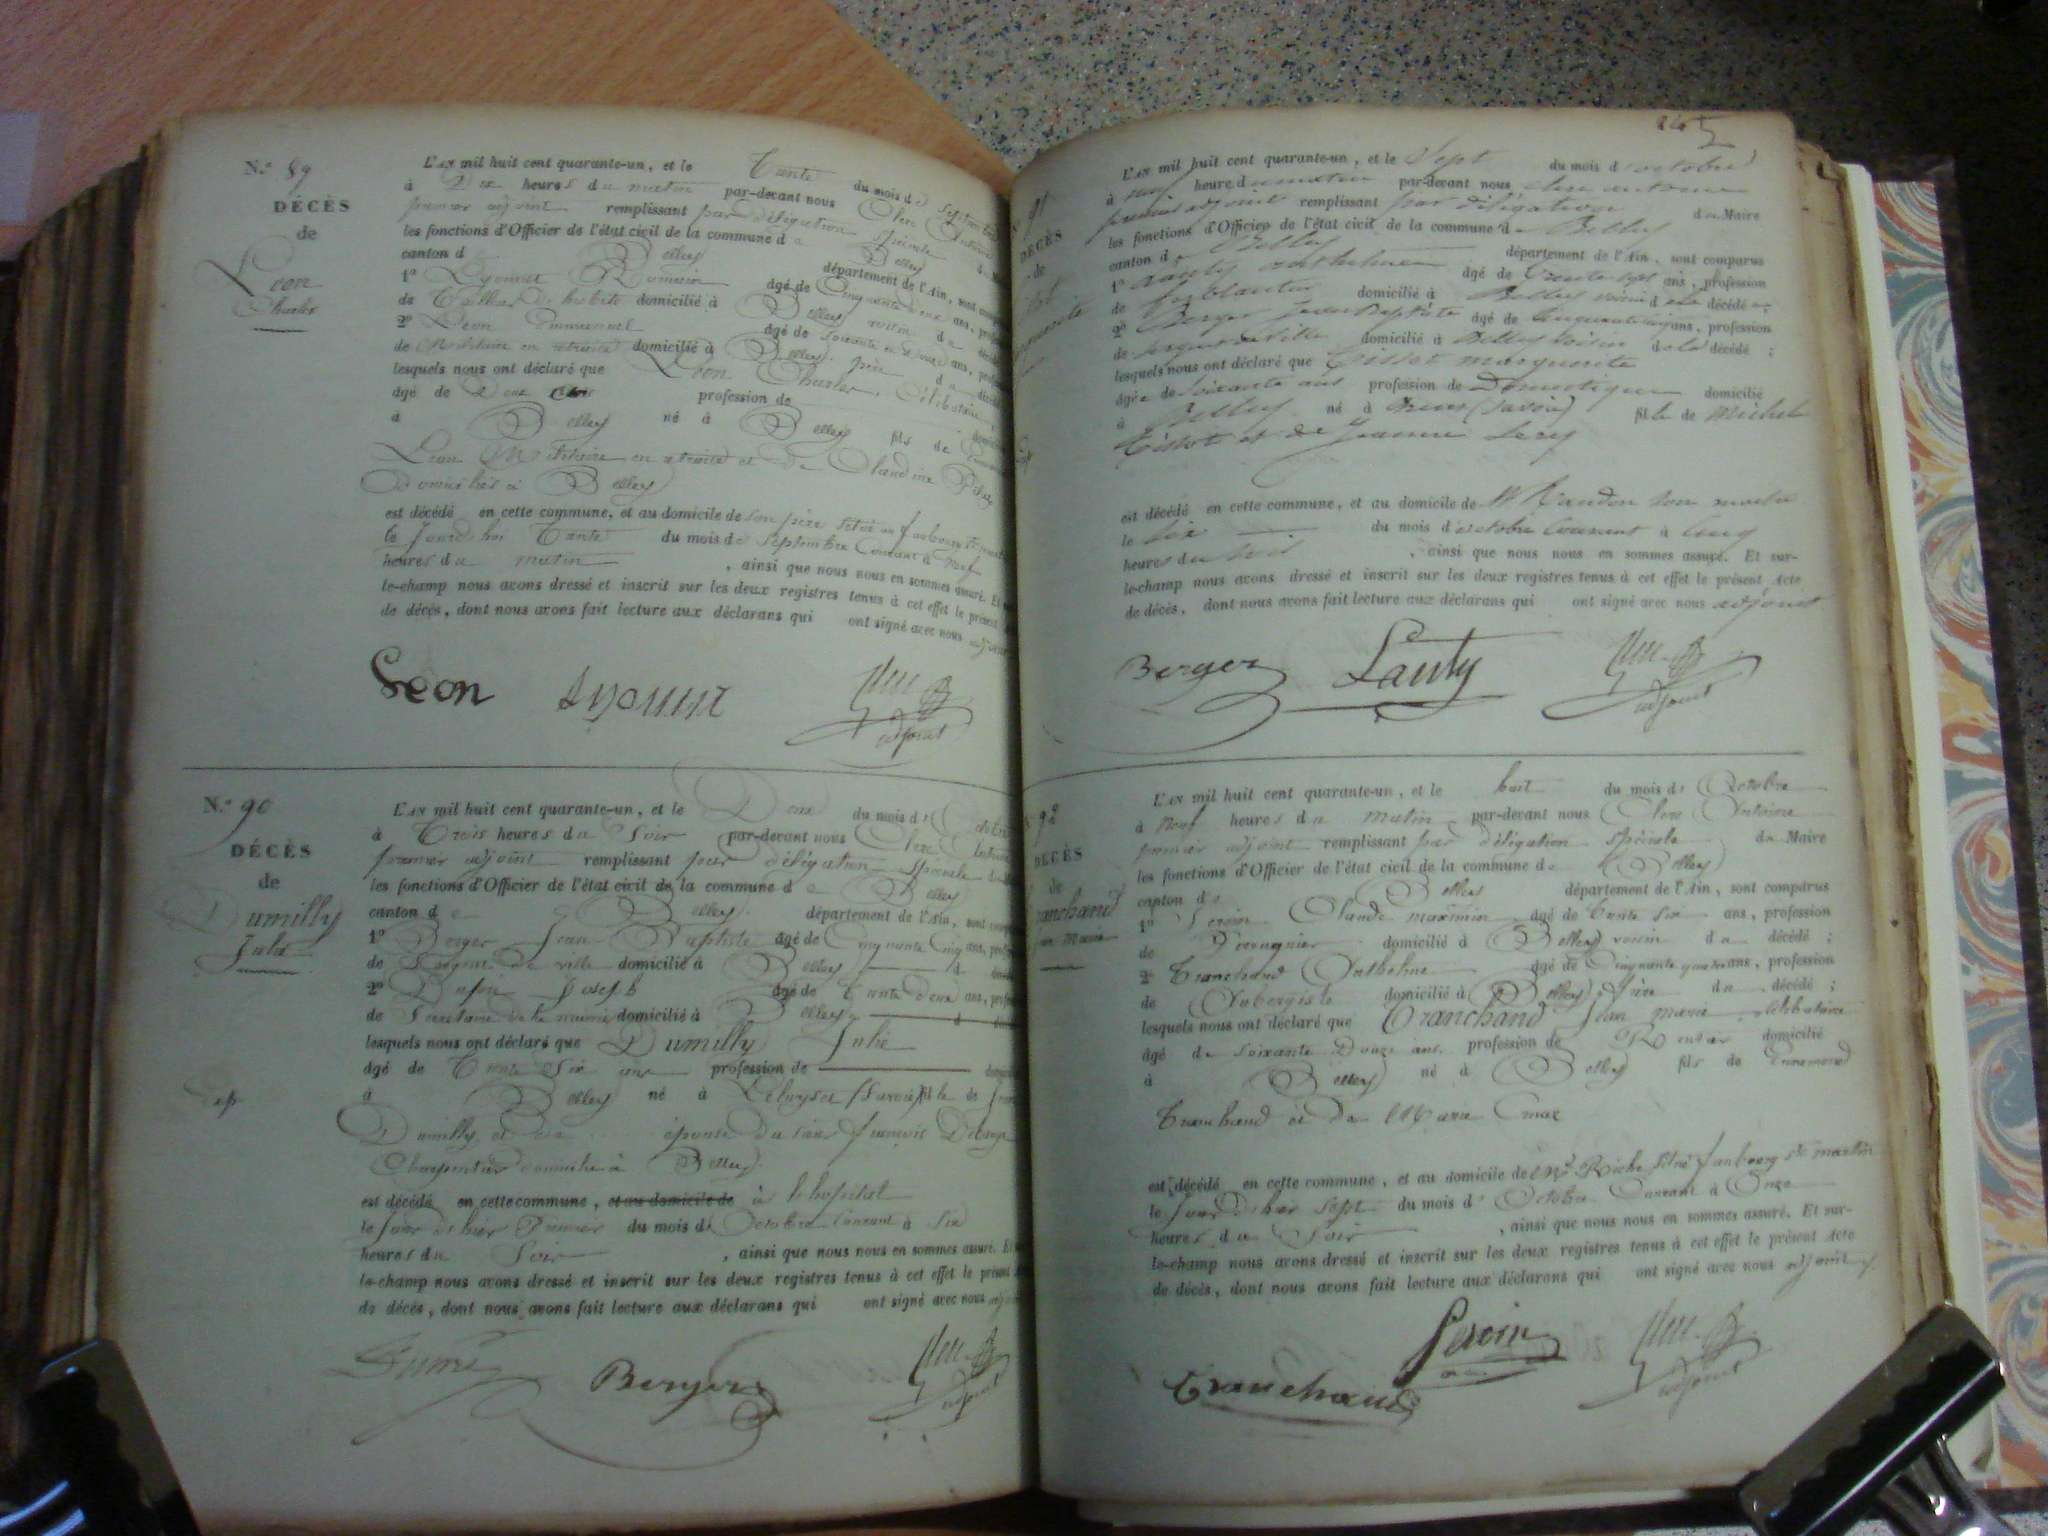 N.º 89
DÉCÈS
de
Léon
Charles
L'AN mil huit cent quarante-un, et le Trente du mois de Septembre
à Dix heures du matin par-devant nous Clerc Antoine
premier adjoint remplissant par délégation spéciale
les fonctions d'Officier de l'état civil de la commune de Belley
canton de Belley département de l'Ain, sont
1º Lyonnet Romain âgé de Cinquante deux ans,
de Tailleur d'habits domicilié à Belley voisin du
2º Léon Emmanuel âgé de soixante et douze ans,
de Militaire en retraite domicilié à Belley père du
lesquels nous ont déclaré que Léon Charles, Célibataire,
âgé de Deux profession de
à Belley né à Belley fils de
Léon Militaire en retraite et de Claudine
Domiciliés à Belley
est décédé en cette commune, et au domicile de son père situé au faubourg
le Jourd'hui Trente du mois de Septembre Courant à neuf
heures du matin , ainsi que nous nous en sommes assuré. Et
le-champ nous avons dressé et inscrit sur les deux registres tenus à cet effet le présent
de décès, dont nous avons fait lecture aux déclarans qui ont signé avec nous adjoint
Léon Lyonnet adjoint
N.º 90
DÉCÈS
de
Dumilly
Julie
L'AN mil huit cent quarante-un, et le Deux du mois d'Octobre
à Trois heures du Soir par-devant nous Clerc Antoine
premier adjoint remplissant par délégation spéciale
les fonctions d'Officier de l'état civil de la commune de Belley
canton de Belley département de l'Ain, sont
1º Berger Jean Baptiste âgé de Cinquante Cinq ans,
de Sergent de ville domicilié à Belley
2º Joseph âgé de trente Deux ans,
de Secrétaire de la mairie domicilié à Belley
lesquels nous ont déclaré que Dumilly Julie
âgé de Trente Six ans profession de
à Belley né à (Savoie) fille de
Dumilly et de épouse du sieur francois
Charpentier domicilié à Belley
est décédé en cette commune, et au domicile de à l'hopital
le Jour d'hier Premier du mois d'Octobre Courant à Six
heures du Soir , ainsi que nous nous en sommes assuré. Et
le-champ nous avons dressé et inscrit sur les deux registres tenus à cet effet le présent
de décès, dont nous avons fait lecture aux déclarans qui ont signé avec nous
Berger adjoint
245
91
DÉCÈS
de
L'AN mil huit cent quarante-un, et le Sept du mois d'octobre
à heure du matin par-devant nous clerc antoine
premier adjoint remplissant par délégation du Maire
les fonctions d'Officier de l'état civil de la commune de Belley
canton de Belley département de l'Ain, sont comparus
1º Lauty anthelme âgé de trente sept ans, profession
de ferblantier domicilié à Belley voisin de la décédée
2º Berger Jean Baptiste âgé de Cinquante cinq ans, profession
de sergent de ville domicilié à Belley voisin de la décédé ;
lesquels nous ont déclaré que Tissot marguerite
âgée de soixante ans profession de Domestique domicilié
à Belley né à (Savoie) fille de Michel
Tissot et de Jeanne
est décédé en cette commune, et au domicile de Mr son maître
le six du mois d'octobre Courant à Cinq
heures du soir , ainsi que nous nous en sommes assuré. Et sur-
le-champ nous avons dressé et inscrit sur les deux registres tenus à cet effet le présent Acte
de décès, dont nous avons fait lecture aux déclarans qui ont signé avec nous adjoint
Berger Lauty adjoint
92
DÉCÈS
de
Tranchand
Jean Marie
L'AN mil huit cent quarante-un, et le huit du mois d'Octobre
à Neuf heures du matin par-devant nous Clerc Antoine
premier adjoint remplissant par délégation spéciale du Maire
les fonctions d'Officier de l'état civil de la commune de Belley
canton de Belley département de l'Ain, sont comparus
1º Claude maximin âgé de trente six ans, profession
de Perruquier domicilié à Belley voisin du décédé ;
2º Tranchand Anthelme âgé de Cinquante quatre ans, profession
de Aubergiste domicilié à Belley frère du décédé ;
lesquels nous ont déclaré que Tranchand Jean marie célibataire
âgé de soixante Douze ans profession de Rentier domicilié
à Belley né à Belley fils de
Tranchand et de Marie
est décédé en cette commune, et au domicile de Mr situé faubourg St martin
le Jour d'hier sept du mois d'Octobre Courant à Onze
heures du Soir , ainsi que nous nous en sommes assuré. Et sur-
le-champ nous avons dressé et inscrit sur les deux registres tenus à cet effet le présent Acte
de décès, dont nous avons fait lecture aux déclarans qui ont signé avec nous adjoint
Tranchand adjoint